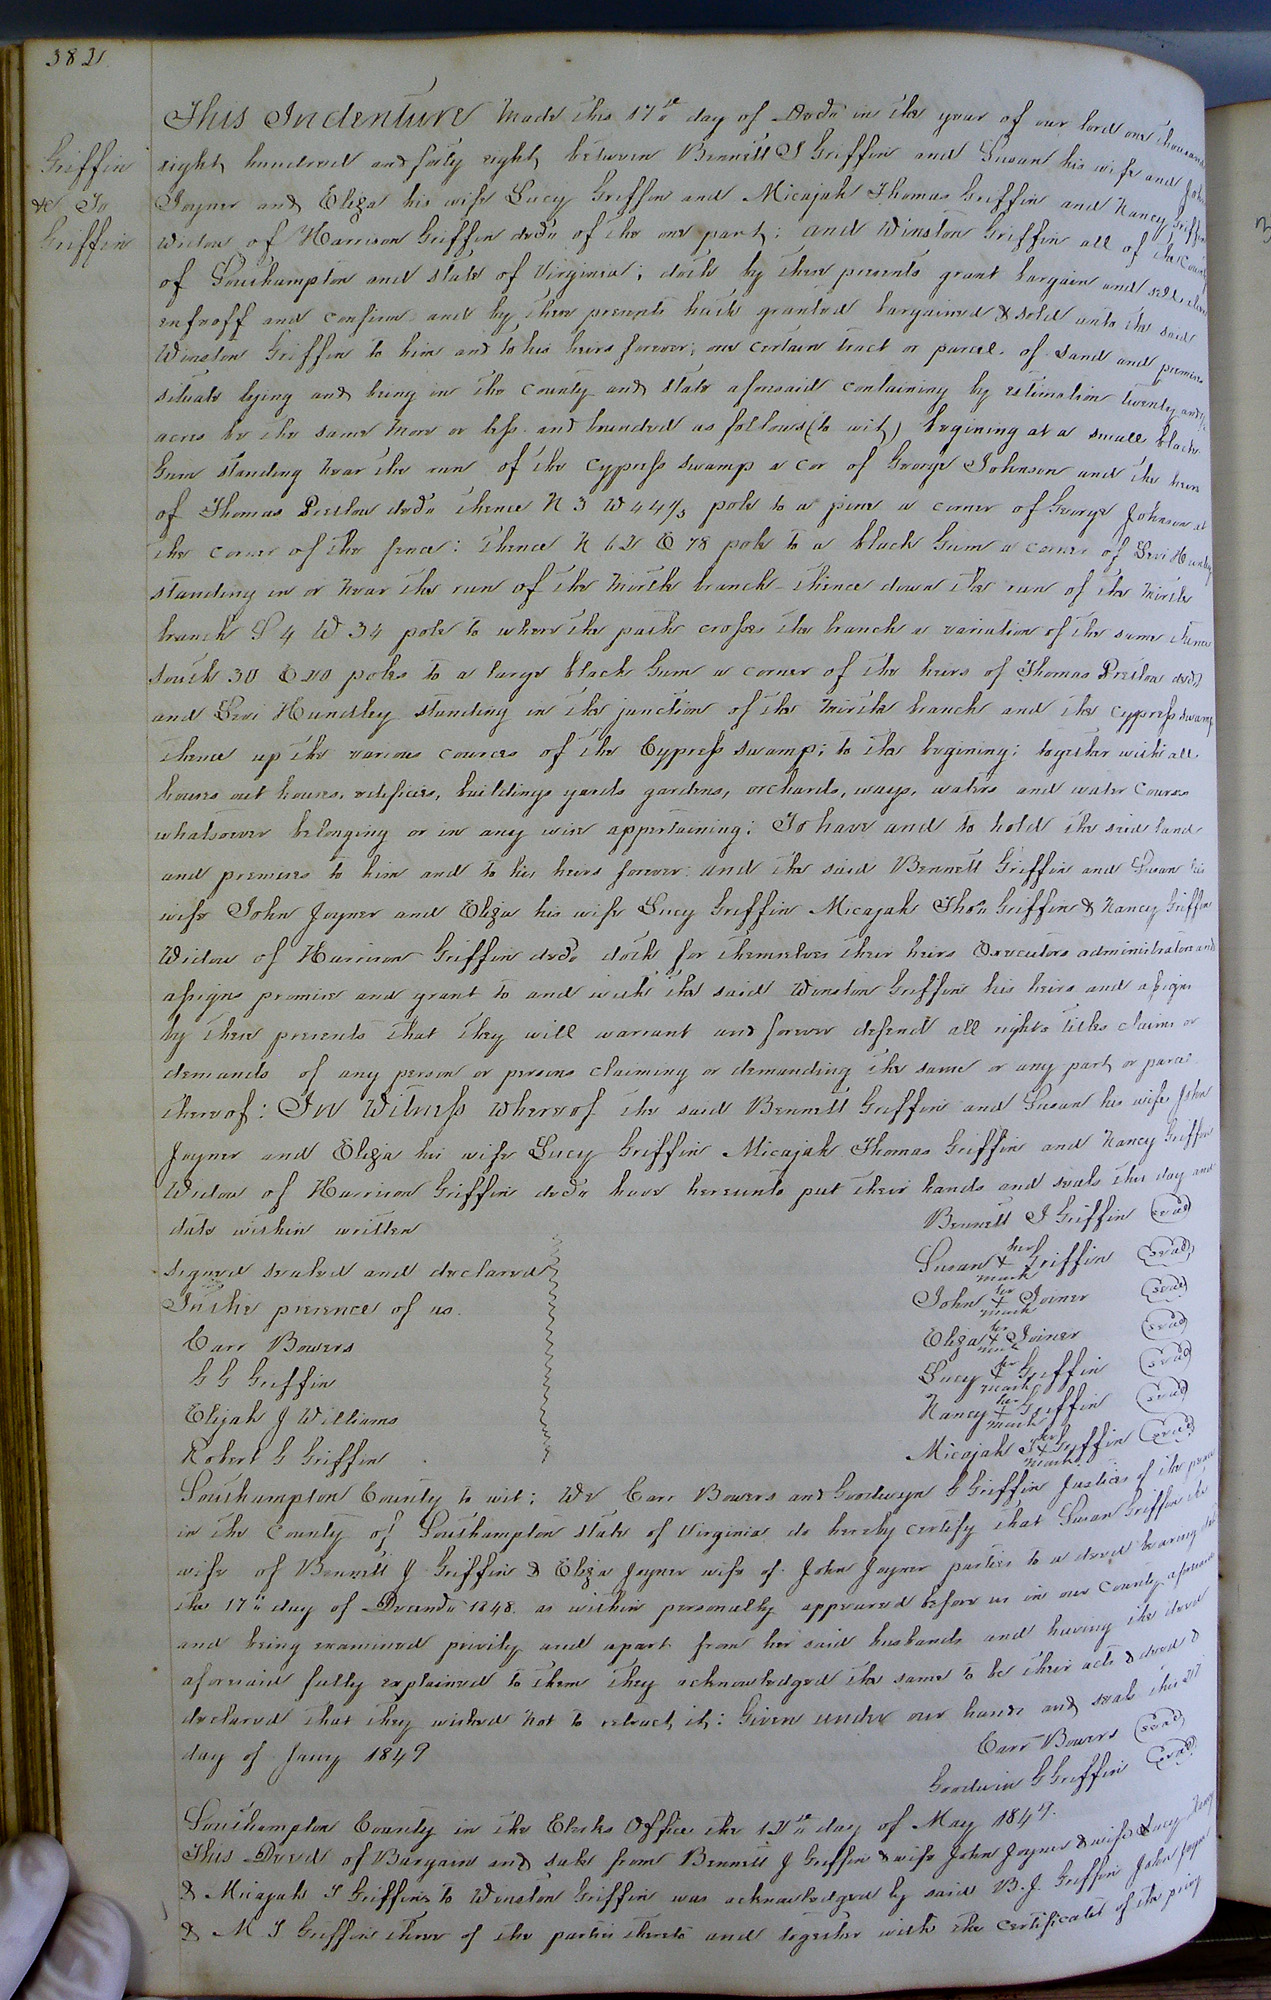 382
Griffin
&c To
Griffin
This Indenture made this 17th day of Decr in the year of our lord one thousand
eight hundred and forty eight between Bennett J Griffin and Susan his wife and John
Joyner and Eliza his wife Lucy Griffin and Micajah Thomas Griffin and Nancy Griffin
Widow of Harrison Griffin decd of the one part; and Winston Griffin all of the County
of Southampton and state of Virginia; doth by these presents grant bargain and sell alien
enfeoff and confirm and by these presents hath granted bargained & sold unto the said
Winston Griffin to him and to his heirs forever; one certain tract or parcel of Land and premises
situate lying and being in the county and state aforesaid containing by estimation twenty and
acres be the same more or less and bounded as follows (to wit) begining at a small black
Gum standing near the run of the cypress swamp a cor of George Johnson and the heirs
of Thomas Preslow decd thence N 3 W 44 4/5 pole to a pine a corner of George Johnson at
the corner of the fence: thence N 62 E 78 pole to a black Gum a corner of Levi Hundley
standing in or near the run of the Mirtle branch thence down the run of the Mirtle
branch S 4 W 34 pole to where the path crosses the branch a variation of the same thence
South 30 E 20 poles to a large black Gum a corner of the heirs of Thomas Preslow decd
and Levi Hundley standing in the junction of the Mirtle branch and the cypress swamp
thence up the various cources of the Cypress swamp; to the begining; together with all
houses out houses, edifices, buildings yards gardens, orchards, ways, waters and water courses
whatsoever belonging or in any wise appertaining; To have and to hold the said land
and premises to him and to his heirs forever: and the said Bennett Griffin and Susan his
wife John Joyner and Eliza his wife Lucy Griffin Micajah Thos Griffin & Nancy Griffin
Widow of Harrison Griffin decd doth for themselves their heirs Executors administrators and
assigns promise and grant to and with the said Winston Griffin his heirs and assigns
by these presents that they will warrant and forever defend all rights titles claims or
demands of any person or persons claiming or demanding the same or any part or parcel
thereof: In Witness whereof the said Bennett Griffin and Susan his wife John
Joyner and Eliza his wife Lucy Griffin Micajah Thomas Griffin and Nancy Griffin
Widow of Harrison Griffin decd have hereunto put their hands and seals this day and
date within written
Bennett J Griffin (seal)
Signed sealed and declared
Susan her + mark Griffin (seal)
In the presence of us
John his + mark Joiner (seal)
Carr Bowers
Eliza her + mark Joiner (seal)
G G Griffin
Lucy her + mark Griffin (seal)
Elijah J Williams
Nancy her + mark Griffin (seal)
Robert G Griffin
Micajah T his + mark Griffin (seal)
Southampton County to wit; We Carr Bowers and Goodwyn G Griffin Justices of the peace
in the County of Southampton state of Virginia do hereby certify that Susan Griffin the
wife of Bennett J Griffin & Eliza Joyner wife of John Joyner parties to a deed bearing date
the 17th day of Decembr 1848 as within personally appeared before us in our County aforesaid
and being examined privily and apart from her said husbands and having the deed
aforesaid fully explained to them they acknowledged the same to be their acts & deed &
declared that they wished not to retract it: Given under our hands and seals this
day of Jany 1849
Carr Bowers (seal)
Goodwin G Griffin (seal)
Southampton County in the Clerks Office the 12th day of May 1849.
This Deed of Bargain and sale from Bennett J Griffin & wife John Joyner & wife Lucy Nancy
& Micajah T Griffin to Winston Griffin was acknowledged by said B. J. Griffin John Joyner
& M T Griffin three of the parties thereto and together with the certificates of the privy